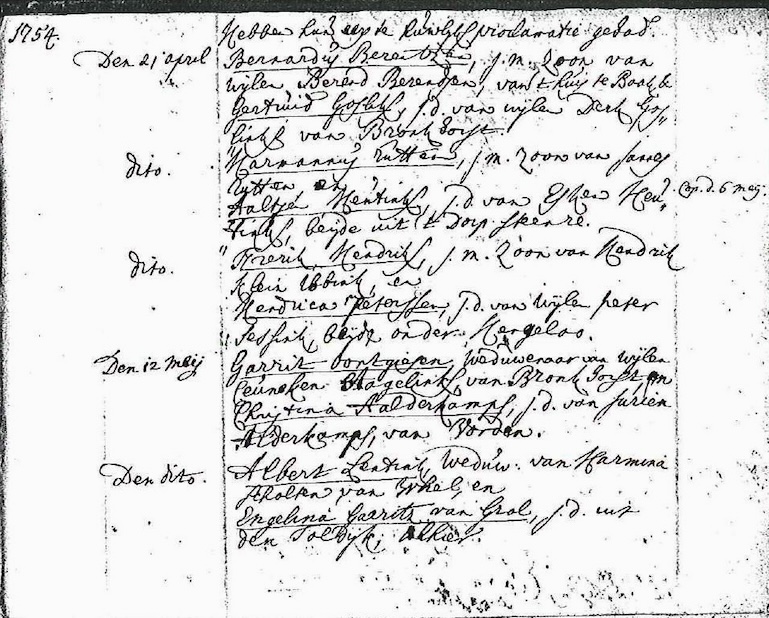 1754. Hebben hun eerste huwlyks proclamatie gehad.
Den 21 april Bernardus Berentsen, j.m. Zoon van
wylen Berend Berendsen, van 't huis te Baak &
Gertruid Goslik, j.d. van wylen Derk Gos„
links van Bronkhorst.
dito. Harmannus Rutten, j.m. Zoon van
Rutten en
Aaltjen Hentink, j.d. van Esken Hen„ Cop. d. 6 meij.
tink, beijde uit 't Dorp Steenre.
dito. Frerik Hendriks, j.m. Zoon van Hendrik
Klein Ubbink, en
Hendrica Peterssen, j.d. van wyle peter
Jessink, beijde onder Hengeloo.
Den 12 Meij Garrit Oontgiesen, Weduwenaar van wijlen
Leuneken Hagelinks, van Bronkhorst en
Christina Aalderkamps, j.d. van Jurien
Alderkamps, van Vorden.
Den dito. Albert Lentink, Weduw. van Harmina
Scholten van en
Engelina Garrits van Grol, j.d. uit
den Toldyk, alhier.